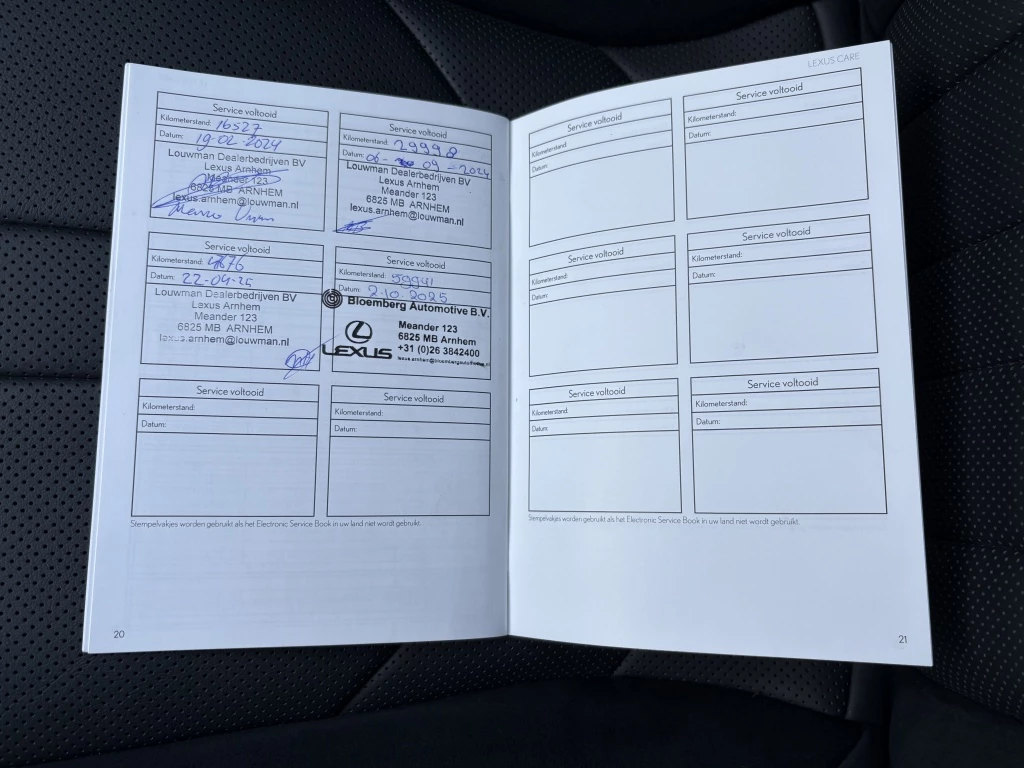 Service voltooid
Kilometerstand: 16527
Datum: 19-02-2024
Louwman Dealerbedrijven BV
Lexus Arnhem
Meander 123
6825 MB ARNHEM
lexus.arnhem@louwman.nl
Service voltooid
Kilometerstand: 29998
Datum: 06- 09-2024
Louwman Dealerbedrijven BV
Lexus Arnhem
Meander 123
6825 MB ARNHEM
lexus.arnhem@louwman.nl
Service voltooid
Kilometerstand:
Datum: 22-04-25
Louwman Dealerbedrijven BV
Lexus Arnhem
Meander 123
6825 MB ARNHEM
lexus.arnhem@louwman.nl
Service voltooid
Kilometerstand: 59941
Datum: 2-10-2025
Bloemberg Automotive B.V.
LEXUS
Meander 123
6825 MB Arnhem
+31 (0)26 3842400
Service voltooid
Kilometerstand:
Datum:
Service voltooid
Kilometerstand:
Datum:
Stempelvakjes worden gebruikt als het Electronic Service Book in uw land niet wordt gebruikt.
20
LEXUS CARE
Service voltooid
Kilometerstand:
Datum:
Service voltooid
Kilometerstand:
Datum:
Service voltooid
Kilometerstand:
Datum:
Service voltooid
Kilometerstand:
Datum:
Service voltooid
Kilometerstand:
Datum:
Service voltooid
Kilometerstand:
Datum:
Stempelvakjes worden gebruikt als het Electronic Service Book in uw land niet wordt gebruikt.
21